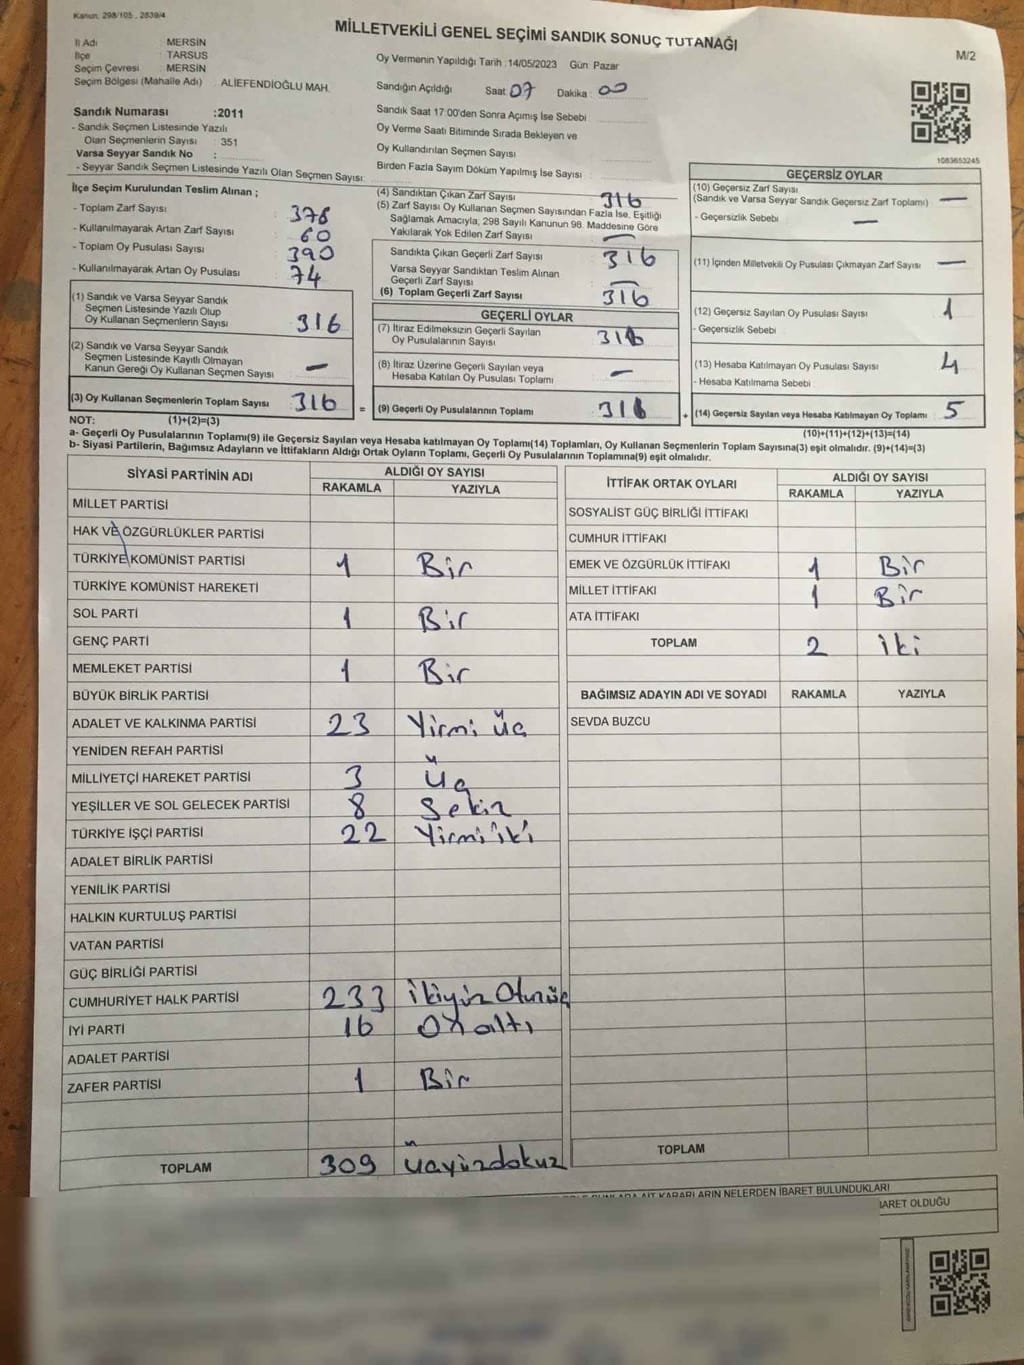 Kanun: 298/105 , 2839/4
MİLLETVEKİLİ GENEL SEÇİMİ SANDIK SONUÇ TUTANAĞI
M/2
İl Adı : MERSİN
İlçe : TARSUS
Seçim Çevresi : MERSİN
Seçim Bölgesi (Mahalle Adı) : ALİEFENDİOĞLU MAH.
Oy Vermenin Yapıldığı Tarih : 14/05/2023 Gün Pazar
Sandığın Açıldığı Saat 07 Dakika : 00
Sandık Numarası : 2011
- Sandık Seçmen Listesinde Yazılı
Olan Seçmenlerin Sayısı : 351
Varsa Seyyar Sandık No :
- Seyyar Sandık Seçmen Listesinde Yazılı Olan Seçmen Sayısı:
Sandık Saat 17:00'den Sonra Açımış İse Sebebi
Oy Verme Saati Bitiminde Sırada Bekleyen ve
Oy Kullandırılan Seçmen Sayısı
Birden Fazla Sayım Döküm Yapılmış İse Sayısı :
1083653245
İlçe Seçim Kurulundan Teslim Alınan ;
- Toplam Zarf Sayısı : 376
- Kullanılmayarak Artan Zarf Sayısı : 60
- Toplam Oy Pusulası Sayısı : 390
- Kullanılmayarak Artan Oy Pusulası : 74
(1) Sandık ve Varsa Seyyar Sandık
Seçmen Listesinde Yazılı Olup
Oy Kullanan Seçmenlerin Sayısı : 316
(2) Sandık ve Varsa Seyyar Sandık
Seçmen Listesinde Kayıtlı Olmayan
Kanun Gereği Oy Kullanan Seçmen Sayısı : –
(3) Oy Kullanan Seçmenlerin Toplam Sayısı : 316
(4) Sandıktan Çıkan Zarf Sayısı : 316
(5) Zarf Sayısı Oy Kullanan Seçmen Sayısından Fazla İse, Eşitliği
Sağlamak Amacıyla; 298 Sayılı Kanunun 98. Maddesine Göre
Yakılarak Yok Edilen Zarf Sayısı : –
Sandıkta Çıkan Geçerli Zarf Sayısı : 316
Varsa Seyyar Sandıktan Teslim Alınan
Geçerli Zarf Sayısı : –
(6) Toplam Geçerli Zarf Sayısı : 316
GEÇERLİ OYLAR
(7) İtiraz Edilmeksizin Geçerli Sayılan
Oy Pusulalarının Sayısı : 316
(8) İtiraz Üzerine Geçerli Sayılan veya
Hesaba Katılan Oy Pusulası Toplamı : –
= (9) Geçerli Oy Pusulalarının Toplamı : 316
GEÇERSİZ OYLAR
(10) Geçersiz Zarf Sayısı
(Sandık ve Varsa Seyyar Sandık Geçersiz Zarf Toplamı) : –
- Geçersizlik Sebebi : –
(11) İçinden Milletvekili Oy Pusulası Çıkmayan Zarf Sayısı : –
(12) Geçersiz Sayılan Oy Pusulası Sayısı : 1
- Geçersizlik Sebebi :
(13) Hesaba Katılmayan Oy Pusulası Sayısı : 4
- Hesaba Katılmama Sebebi :
+ (14) Geçersiz Sayılan veya Hesaba Katılmayan Oy Toplamı : 5
NOT: (1)+(2)=(3)
(10)+(11)+(12)+(13)=(14)
a- Geçerli Oy Pusulalarının Toplamı(9) ile Geçersiz Sayılan veya Hesaba katılmayan Oy Toplamı(14) Toplamları, Oy Kullanan Seçmenlerin Toplam Sayısına(3) eşit olmalıdır. (9)+(14)=(3)
b- Siyasi Partilerin, Bağımsız Adayların ve İttifakların Aldığı Ortak Oyların Toplamı, Geçerli Oy Pusulalarının Toplamına(9) eşit olmalıdır.
SİYASİ PARTİNİN ADI ALDIĞI OY SAYISI
RAKAMLA YAZIYLA
MİLLET PARTİSİ
HAK VE ÖZGÜRLÜKLER PARTİSİ
TÜRKİYE KOMÜNİST PARTİSİ 1 Bir
TÜRKİYE KOMÜNİST HAREKETİ
SOL PARTİ 1 Bir
GENÇ PARTİ
MEMLEKET PARTİSİ 1 Bir
BÜYÜK BİRLİK PARTİSİ
ADALET VE KALKINMA PARTİSİ 23 Yirmi üç
YENİDEN REFAH PARTİSİ
MİLLİYETÇİ HAREKET PARTİSİ 3 üç
YEŞİLLER VE SOL GELECEK PARTİSİ 8 Sekiz
TÜRKİYE İŞÇİ PARTİSİ 22 Yirmi iki
ADALET BİRLİK PARTİSİ
YENİLİK PARTİSİ
HALKIN KURTULUŞ PARTİSİ
VATAN PARTİSİ
GÜÇ BİRLİĞİ PARTİSİ
CUMHURİYET HALK PARTİSİ 233 ikiyüz Otuzüç
İYİ PARTİ 16 Onaltı
ADALET PARTİSİ
ZAFER PARTİSİ 1 Bir
TOPLAM 309 üçyüzdokuz
İTTİFAK ORTAK OYLARI ALDIĞI OY SAYISI
RAKAMLA YAZIYLA
SOSYALİST GÜÇ BİRLİĞİ İTTİFAKI
CUMHUR İTTİFAKI
EMEK VE ÖZGÜRLÜK İTTİFAKI 1 Bir
MİLLET İTTİFAKI 1 Bir
ATA İTTİFAKI
TOPLAM 2 iki
BAĞIMSIZ ADAYIN ADI VE SOYADI RAKAMLA YAZIYLA
SEVDA BUZCU
TOPLAM
KARARLARIN NELERDEN İBARET BULUNDUKLARI
İBARET OLDUĞU